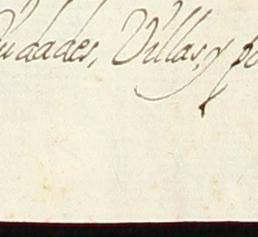 udades, Villas, y po